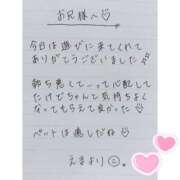 お兄様へ♡
今日は遊びに来てくれて
ありがとうございました
節ち悪して…って心配して
たけどちゃんて気持ちよく
なってもらえて良かった♡
ペットは適しだね♡
えまより☺。